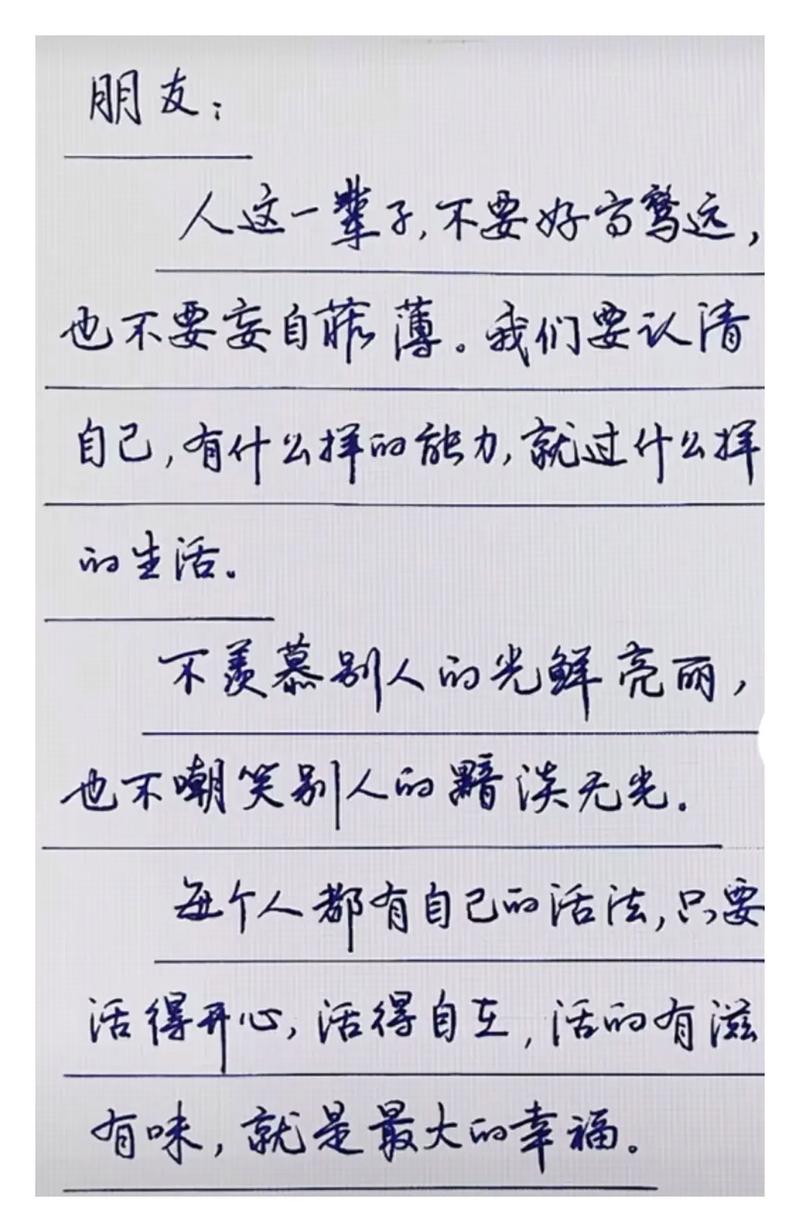 朋友：
人这一辈子，不要好高骛远，
也不要妄自菲薄。我们要认清
自己，有什么样的能力，就过什么样
的生活。
不羡慕别人的光鲜亮丽，
也不嘲笑别人的黯淡无光。
每个人都有自己的活法，只要
活得开心，活得自在，活的有滋
有味，就是最大的幸福。